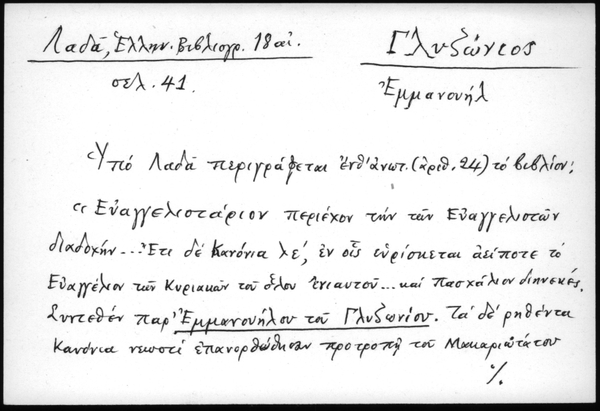 Λαδᾶ, Ἑλλην. Βιβλιογρ. 18 αἰ.
Γλυζώνιος
σελ. 41.
Ἐμμανουήλ
Ὑπό Λαδᾶ περιγράφεται ἐνθ' ἀνωτ. (ἀριθ. 24) τό βιβλίον:
"Εὐαγγελιστάριον περιέχον τήν τῶν Εὐαγγελιστῶν
διαδοχήν... Ἔτι δέ Κανόνια λε', ἐν οἷς εὑρίσκεται ἀείποτε τό
Εὐαγγέλιον τῶν Κυριακῶν τοῦ ὅλου ἐνιαυτοῦ... καί πασχάλιον διηνεκές.
Συντεθέν παρ' Ἐμμανουήλου τοῦ Γλυζωνίου. Τά δέ ῥηθέντα
Κανόνια νεωστί ἐπανορθώθησαν προτροπῇ τοῦ Μακαριωτάτου
%.